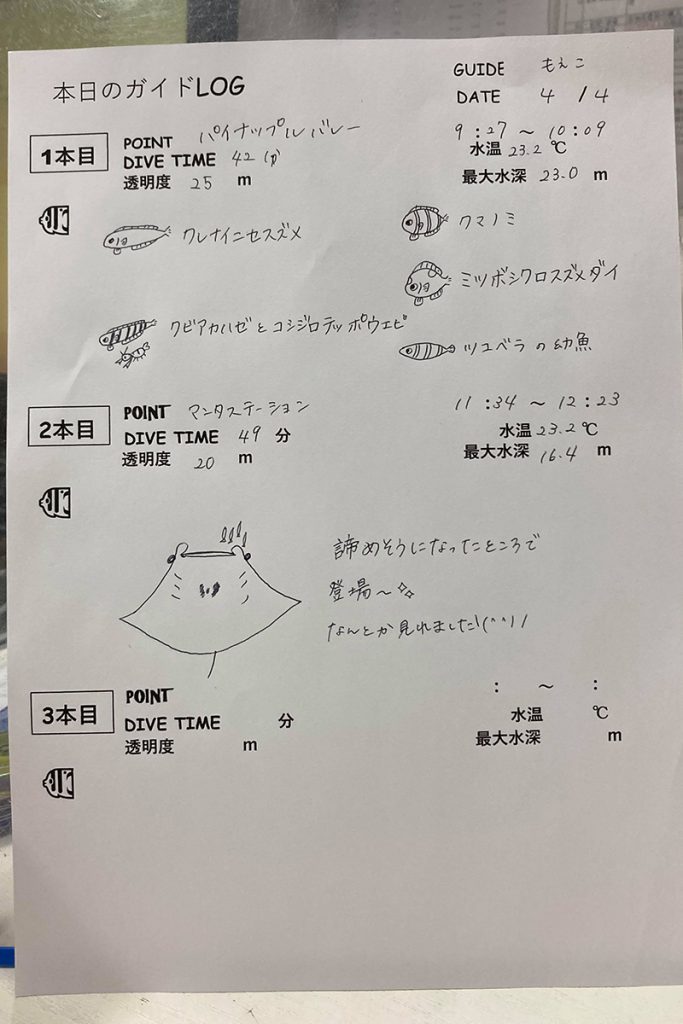 本日のガイドLOG
GUIDE もえこ
DATE 4 / 4
1本目
POINT パイナップルバレー
9:27 ~ 10:09
DIVE TIME 42分
水温 23.2 ℃
透明度 25 m
最大水深 23.0 m
クレナイニセスズメ
クマノミ
ミツボシクロスズメダイ
クビアカハゼとコシジロテッポウエビ
ツユベラの幼魚
2本目
POINT マンタステーション
11:34 ~ 12:23
DIVE TIME 49 分
水温 23.2 ℃
透明度 20 m
最大水深 16.4 m
諦めそうになったところで
登場~✧
なんとか見れました!(^^)!
3本目
POINT
: ~ :
DIVE TIME 分
水温 ℃
透明度 m
最大水深 m